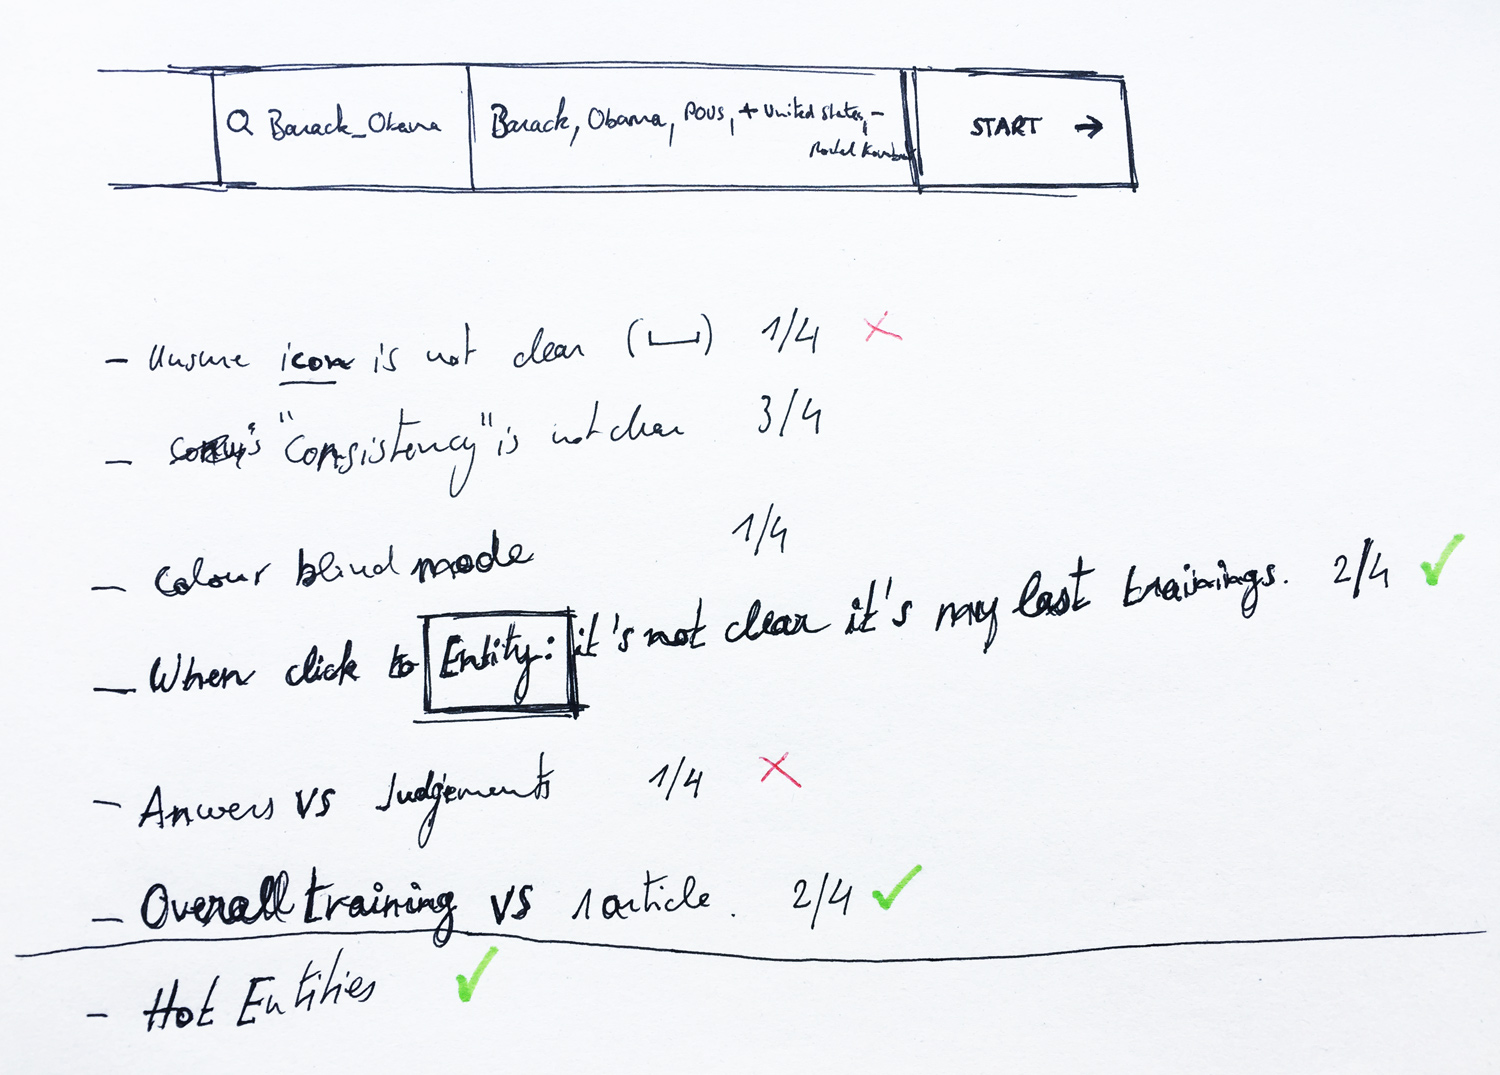 Barack_Obama
Barack, Obama, POUS, + United States, -
START →
- Unsure icon is not clear (⎵) 1/4 ✗
- "Consistency" is not clear 3/4
- Colour blind mode 1/4
- When click to Entity: it's not clear it's my last trainings. 2/4 ✓
- Anwers VS Judgements 1/4 ✗
- Overall training VS 1 article. 2/4 ✓
- Hot Entities ✓